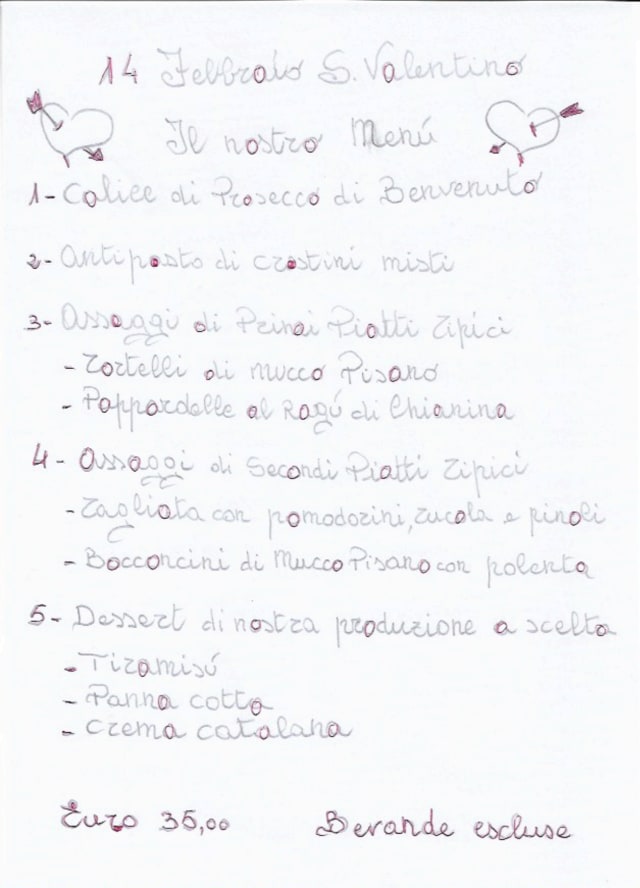 14 Febbraio S. Valentino
Il nostro Menú
1- Calice di Prosecco di Benvenuto
2- Antipasto di crostini misti
3- Assaggi di Primi Piatti Tipici
- Tortelli di Mucco Pisano
- Pappardelle al Ragú di Chianina
4- Assaggi di Secondi Piatti Tipici
- Tagliata con pomodorini, rucola e pinoli
- Bocconcini di Mucco Pisano con polenta
5- Dessert di nostra produzione a scelta
- Tiramisú
- Panna cotta
- Crema catalana
Euro 35,00 Bevande escluse